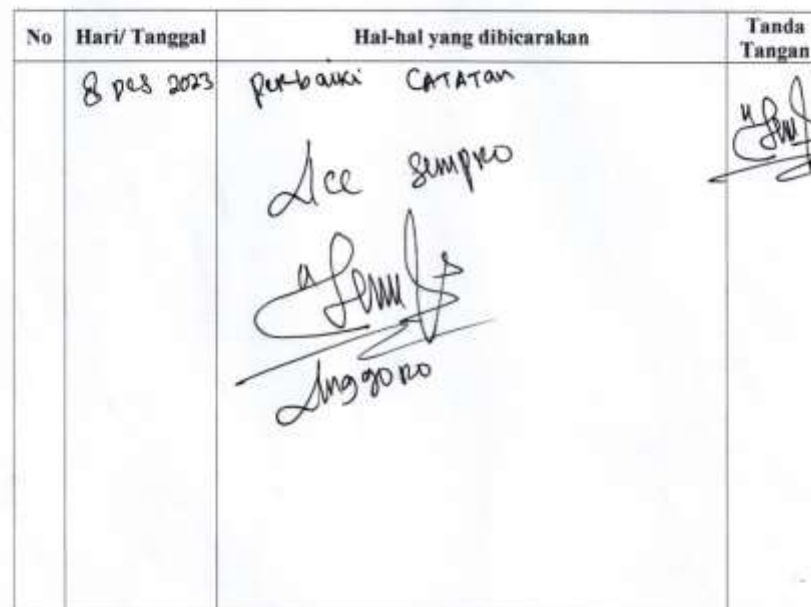 No Hari/ Tanggal Hal-hal yang dibicarakan Tanda Tangan
8 Des 2023 Perbaiki CATATAN
Acc Sempro
Anggoro